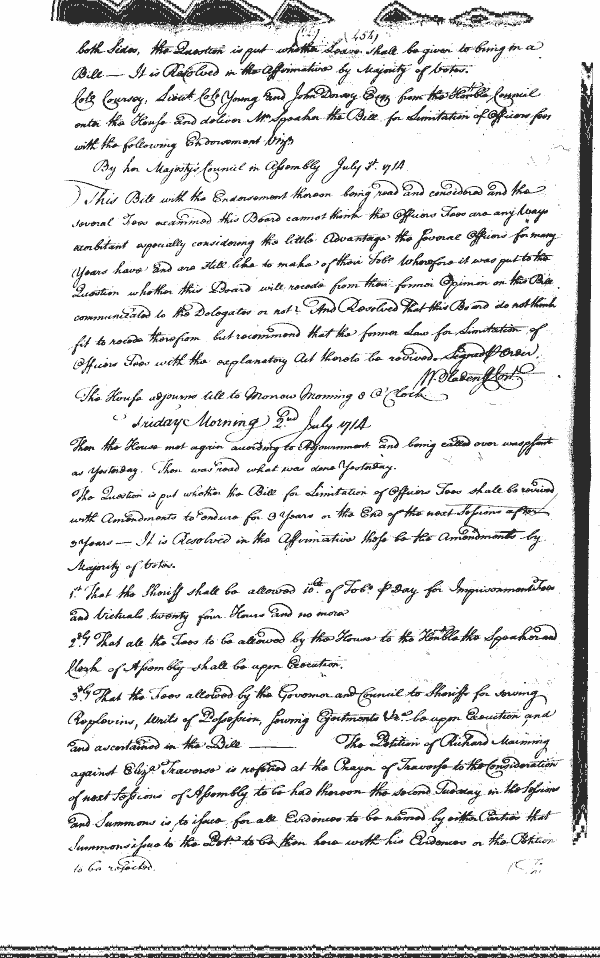 454
both Sides, the Question is put whether Leave shall be given to bring in a
Bill — It is Resolved in the Affirmative by Majority of Votes.
Coll Coursey, Lieut Coll Young and John Dorsey Esqr from the Honble Council
enter the House and deliver Mr Speaker the Bill for Limitation of Officers fees
with the following Endorsement Vizt
By her Majestys Council in Assembly July 1st 1714
This Bill with the Endorsement thereon being read and considered and the
several Fees examined this Board cannot think the Officers Fees are any ways
exorbitant especially considering the little Advantage the several Officers for many
Years have and are still like to make of their Tobo Wherefore it was put to the
Question whether this Board will recede from their former Opinion on this Bill
communicated to the Delegates or not? And Resolved that this Board do not think
fit to recede therefrom but recommend that the former Law for Limitation of
Officers Fees with the explanatory Act thereto be revived. Signed P Order,
W Bladen Cl Con.
The House adjourns till to Morrow Morning 8 O'Clock
Friday Morning 2nd July 1714
Then the House met again according to Adjournment and being called over was psent
as Yesterday. Then was read what was done Yesterday.
The Question is put whether the Bill for Limitation of Officers Fees shall be revived
with Amendments to endure for 3 Years or the End of the next Sessions after
3 Years — It is Resolved in the Affirmative these be the Amendments by
Majority of Votes.
1st That the Sheriff shall be allowed 10lb of Tobo P Day for Imprisonment Fees
and Victuals twenty four Hours and no more
2dly That all the Fees to be allowed by the House to the Honble the Speaker and
Clerk of Assembly shall be upon Execution.
3dly That the Fees allowed by the Governor and Council to Sheriffs for serving
Replevins, Writs of Possession, serving Ejectments &ca be upon Execution and
and ascertained in the Bill — The Petition of Richard Manning
against Eliza Traverse is referred at the Prayer of Traverse to the Consideration
of next Sessions of Assembly to be had thereon the second Tuesday in the Sessions
and Summons is to issue for all Evidences to be named by either Parties that
Summons issue to the Petr to be then here with his Evidences or the Petition
to be rejected.